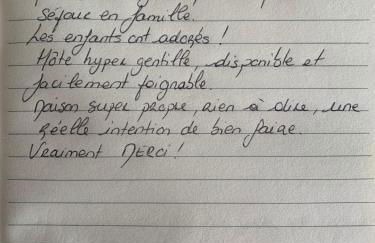 séjour en famille.
Les enfants ont adorés !
Hôte hyper gentille, disponible et
facilement joignable.
Maison super propre, rien à dire, une
réelle intention de bien faire.
Vraiment MERCI !